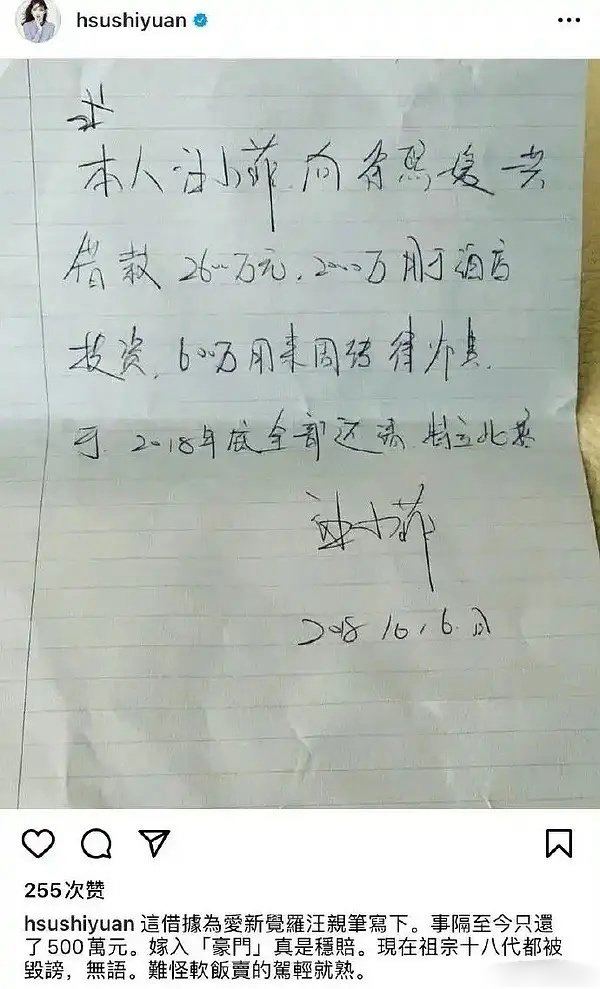 hsushiyuan
本人汪小菲 向徐熙媛 共
借款 2600万元，2000万用于酒店
投资，600万用来周转律师费，
于 2018年底全部还清 特立此据
汪小菲
2018 10，6.日
255次赞
hsushiyuan 這借據為愛新覺羅汪親筆寫下。事隔至今只還
了500萬元。嫁入「豪門」真是穩賠。現在祖宗十八代都被
毀謗，無語。難怪軟飯賣的駕輕就熟。